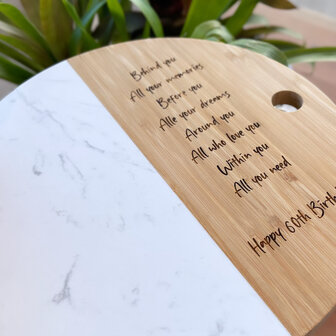 Behind you
All your memories
Before you
Alle your dreams
Around you
All who love you
Within you
All you need
Happy 60th Birth